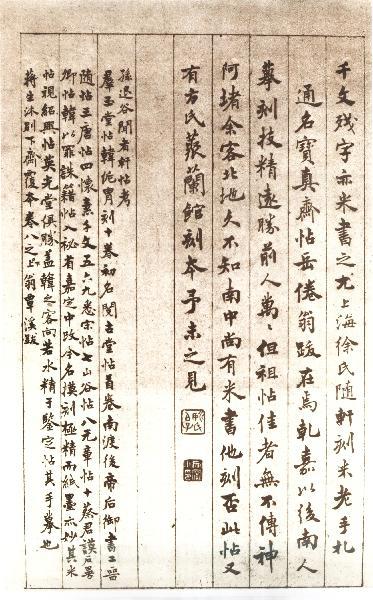 千文殘字亦米書之尤上海徐氏隨軒刻米老手札
通名寶真齋帖岳倦翁跋在焉乾嘉以後南人
摹刻技精遠勝前人萬〻但祖帖佳者無不傳神
阿堵余客北地久不知南中尚有米書他刻否此帖又
有方氏蘭館刻本予未之見
孫退谷閒者軒帖考
羣玉堂帖韓侂胄刻十卷初名閱古堂帖首卷南渡後帝后御書二晉
隨帖三唐帖四懷素千文五六九悉宗帖七山谷帖八元章帖十蔡君謨石曼
卿帖韓以罪誅籍帖入祕省嘉定中改今名摸刻極精而紙墨亦妙其米
帖視紹興帖英光堂俱勝蓋韓之客向若水精于鑒定帖其手摹也
蔣生沐別下齋覆本卷八之上翁覃溪跋